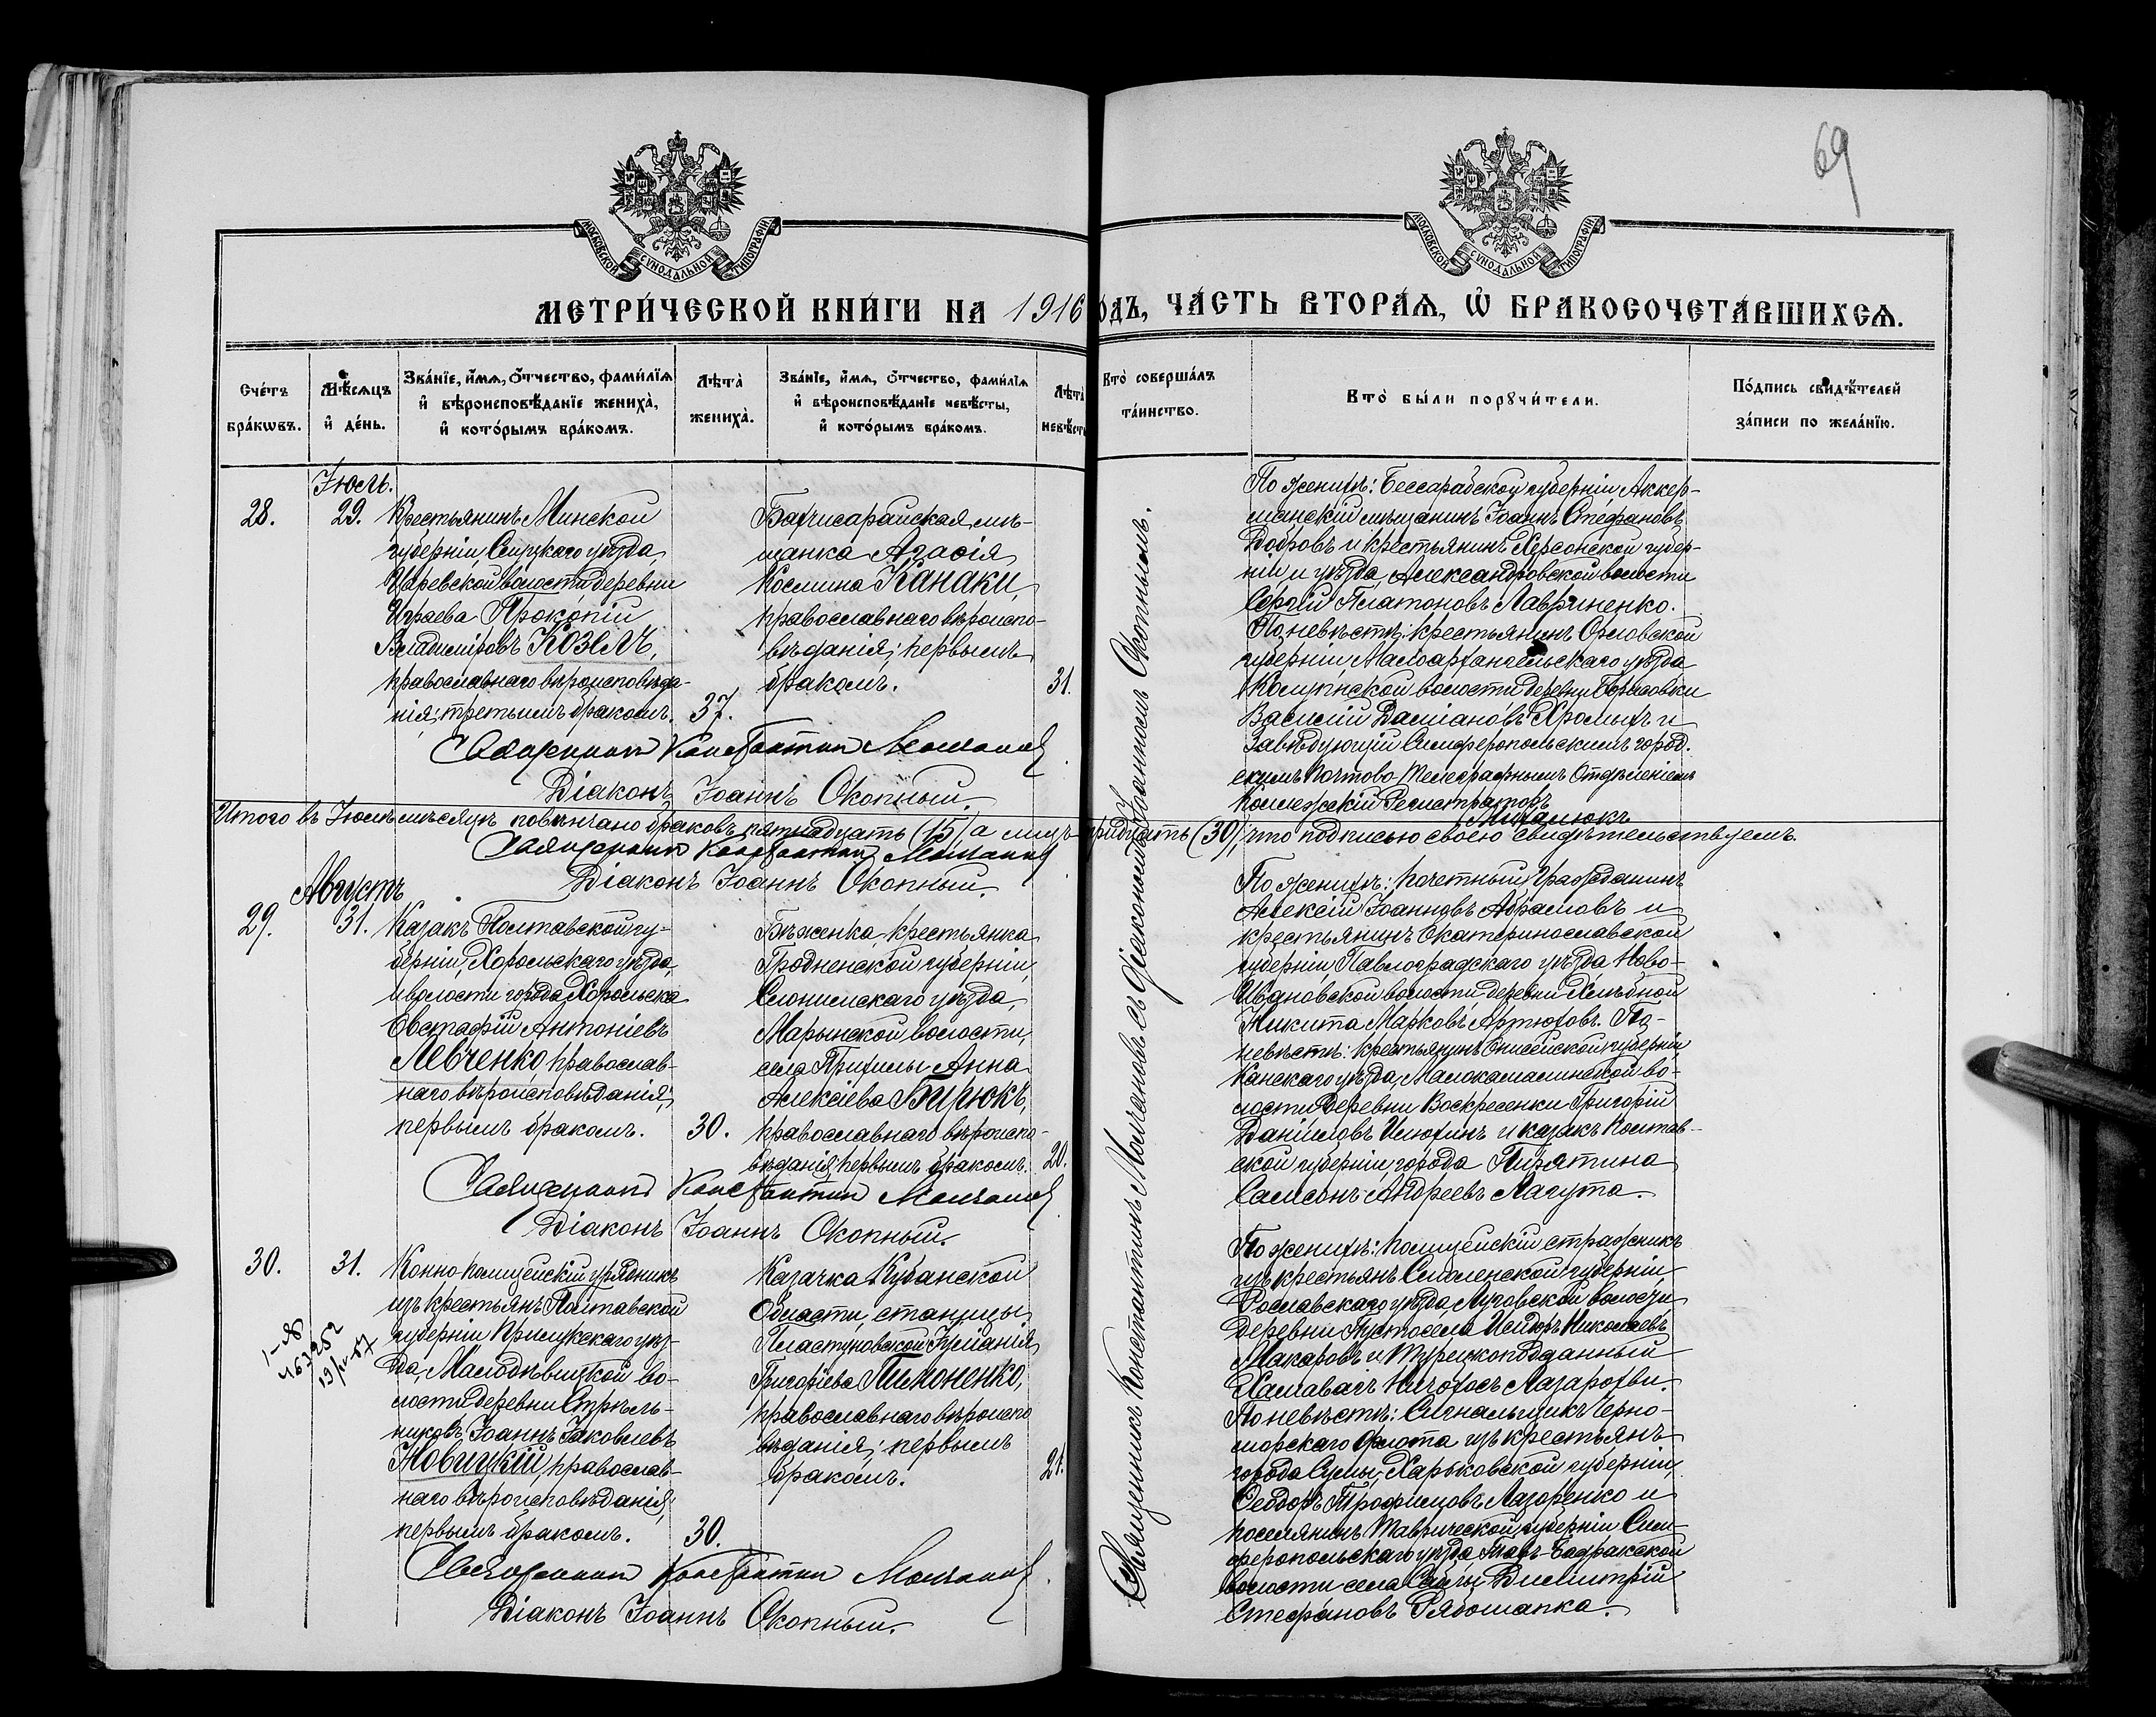 69
МОСКОВСКОЙ СУНОДАЛЬНОЙ ТИПОГРАФИИ
МОСКОВСКОЙ СУНОДАЛЬНОЙ ТИПОГРАФИИ
МЕТРИ́ЧЕСКОЙ КНИ́ГИ НА 1916
ОДЪ, ЧА́СТЬ ВТОРА́Ѧ, Ѡ҆ БРАКОСОЧЕТА́ВШИХСѦ.
Сче́тъ бра́кѡвъ.
Мѣ́сѧцъ и҆ де́нь.
Зва́нїе, и҆́мѧ, ѻ҆́тчество, фами́лїѧ
и҆ вѣроисповѣ́данїе жениха̀,
и҆ кото́рымъ бра́комъ.
Лѣта̀ жениха̀.
Зва́нїе, и҆́мѧ, ѻ҆́тчество, фами́лїѧ
и҆ вѣроисповѣ́данїе невѣ́сты,
и҆ кото́рымъ бра́комъ.
Лѣта̀ невѣ́ст
Кто̀ соверша́лъ
та́инство.
Кто̀ бы́ли порꙋчи́тели.
По́дпись свидѣ́телей
за́писи по жела́нїю.
Іюль.
28.
29.
Крестьянинъ Минской
губерніи, Слуцкаго уѣзда,
Царевской волости деревни
Прокопій
Владиміровъ КОЗЕЛЪ,
православнаго вѣроисповѣда-
нія; третьимъ бракомъ.
37.
Бахчисарайская мѣ-
щанка Агафія
Космина Канаки,
православнаго вѣроиспо-
вѣданія; первымъ
бракомъ.
31.
Священникъ Константинъ Молчановъ
Діаконъ Іоаннъ Окопный.
По женихѣ: Бессарабской губерніи Аккер-
манскій мѣщанинъ Іоаннъ Стефановъ
Добровъ и крестьянинъ Херсонской губер-
ніи и уѣзда, Александровской волости
Сергій Платоновъ Лавриненко.
По невѣстѣ: крестьянинъ Орловской
губерніи Малоархангельскаго уѣзда
волости деревни Борисовки
Василій Даміановъ Хромыхъ и
Завѣдующій Симферопольскимъ город-
скимъ Почтово-Телеграфнымъ Отдѣленіемъ
Коллежскій Регистраторъ
Михалюкъ
Итого въ Іюлѣ мѣсяцѣ повѣнчано браковъ пятнадцать (15), а лицъ тридцать (30), что подписью своею свидѣтельствуемъ.
Священникъ Константинъ Молчановъ
Діаконъ Іоаннъ Окопный.
Августъ
29.
31.
Казакъ Полтавской гу-
берніи, Хорольскаго уѣзда,
и волости города Хорольска
Евстафій Антоніевъ
Левченко, православ-
наго вѣроисповѣданія;
первымъ бракомъ.
30.
Бѣженка, крестьянка
Гродненской губерніи,
Слонимскаго уѣзда,
Марынской волости,
села Анна
Алексіева Бирюкъ,
православнаго вѣроиспо-
вѣданія; первымъ бракомъ.
20.
Священникъ Константинъ Молчановъ
Діаконъ Іоаннъ Окопный.
По женихѣ: почетный гражданинъ
Алексій Іоанновъ Абрамовъ и
крестьянинъ Екатеринославской
губерніи Павлоградскаго уѣзда Ново-
Ивановской волости, деревни Хлѣбной
Никита Марковъ Артюховъ. По
невѣстѣ: крестьянинъ Енисейской губерніи,
Канскаго уѣзда, Малокамалинской во-
лости деревни Воскресенки Григорій
Даніиловъ Илюхинъ и казакъ Полтав-
ской губерніи, города Пирятина
Самсонъ Андреевъ Лагута.
30.
31.
Конно-полицейскій урядникъ
изъ крестьянъ Полтавской
губерніи Прилукскаго уѣз-
да, Малодѣвицкой во-
лости деревни Стрѣль-
никовъ, Іоаннъ Іаковлевъ
Новицкій, православ-
наго вѣроисповѣданія;
первымъ бракомъ.
30.
Казачка Кубанской
Области, станицы
Пластуновской Іуліанія
Григоріева Пилоненко,
православнаго вѣроиспо
вѣданія; первымъ
бракомъ.
21.
Священникъ Константинъ Молчановъ.
Діаконъ Іоаннъ Окопный.
По женихѣ: полицейскій стражникъ
изъ крестьянъ Смоленской губерніи,
Рославскаго уѣзда, Луговской волости
деревни Пустосела Исидоръ Николаевъ
Макаровъ и Турецкоподданный
Лазаровъ.
По невѣстѣ: Сигнальщикъ Черно-
морскаго флота изъ крестьянъ
города Сумы, Харьковской губерніи,
Ѳеодоръ Трофимовъ Лазоренко и
поселянинъ Таврической губерніи Сим-
феропольскаго уѣзда, Тавъ-Бадракской
волости села Саблы Димитрій
Стефановъ Рябошапка.
Священникъ Константинъ Молчановъ съ діакономъ Іоанномъ Окопнымъ.